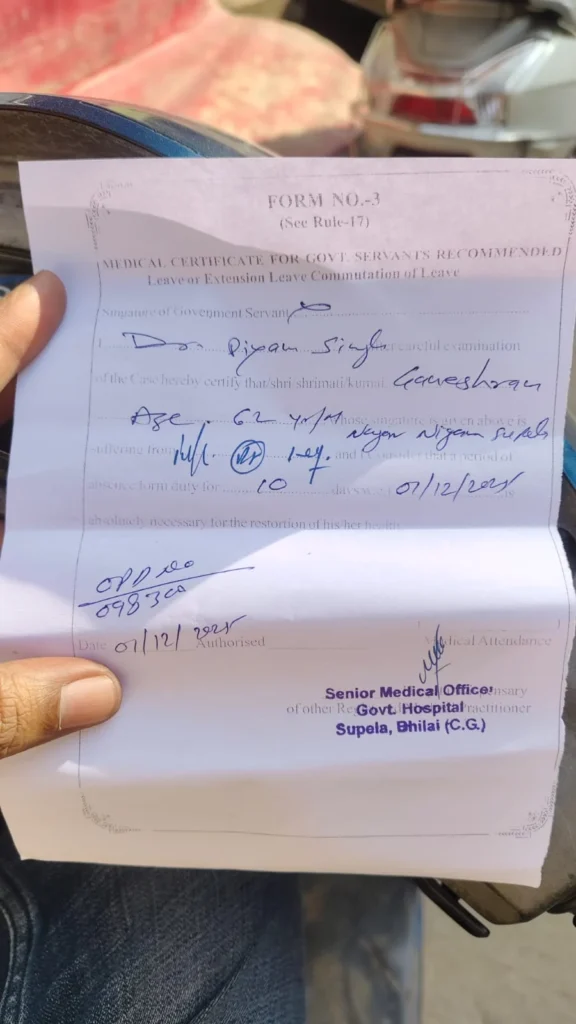 FORM NO.-3
(See Rule-17)
MEDICAL CERTIFICATE FOR GOVT. SERVANTS RECOMMENDED
Leave or Extension Leave Commutation of Leave
Singature of Govenment Servant
I Dr. Piyam Singh careful examination
of the Case hereby certify that/shri-shrimati/kumai Ganeshram
Age. 62 yr/M whose singature is given above is
Nagar Nigam Supela
suffering from Rt. Leg. and I consider that a period of
absence form duty for 10 days 01/12/2025
absolutely necessary for the restortion of his her
OPD No
098300
Date 01/12/2025 Authorised Medical Attendance
Senior Medical Officer
of other Practitioner
Govt. Hospital
Supela, Bhilai (C.G.)